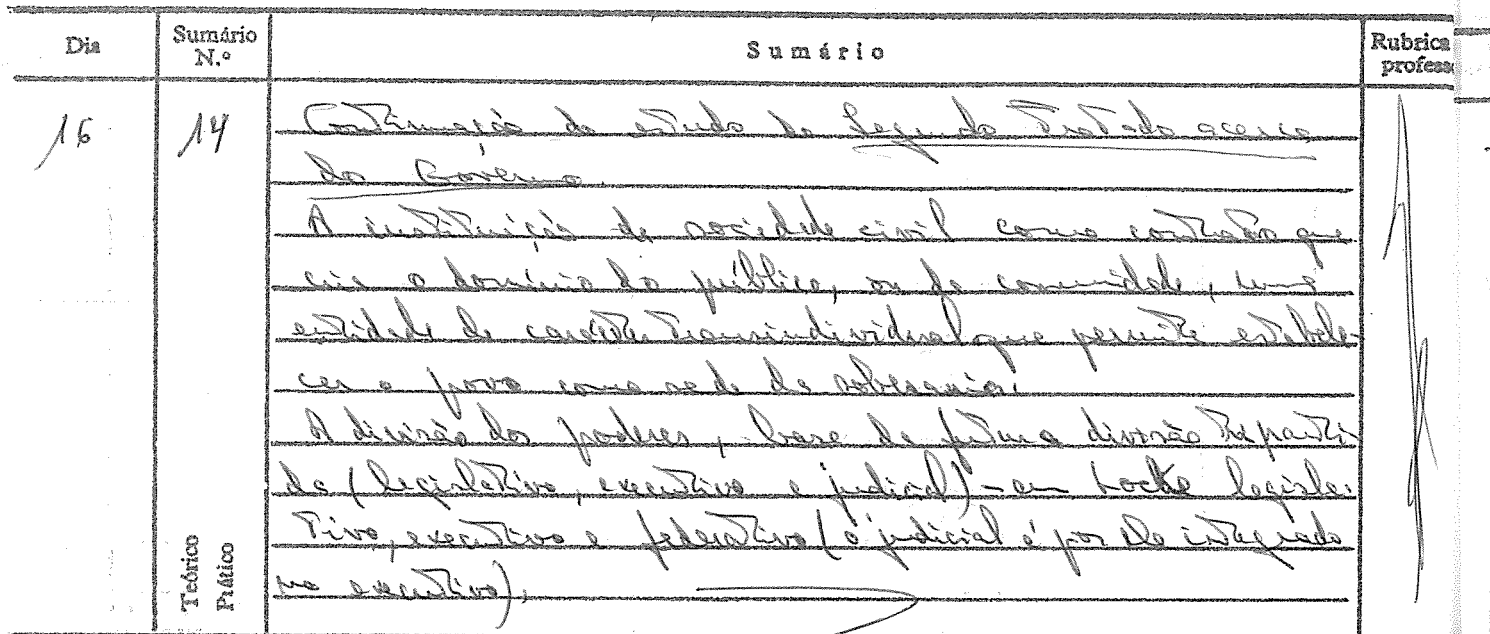 Dia
Sumário N.º
Sumário
Rubrica
profess
16
14
Continuação do estudo do Segundo Tratado acerca
do Governo.
A instituição da sociedade civil como contrato que
cria o domínio do público, ou da comunidade, uma
entidade de carácter transindividual que permite estabele-
cer o povo como sede da soberania.
A divisão dos poderes, base da futura divisão triparti-
da (legislativo, executivo e judicial) – em Locke legisla-
tivo, executivo e federativo (o judicial é por ele integrado
no executivo).
Teórico
Prático